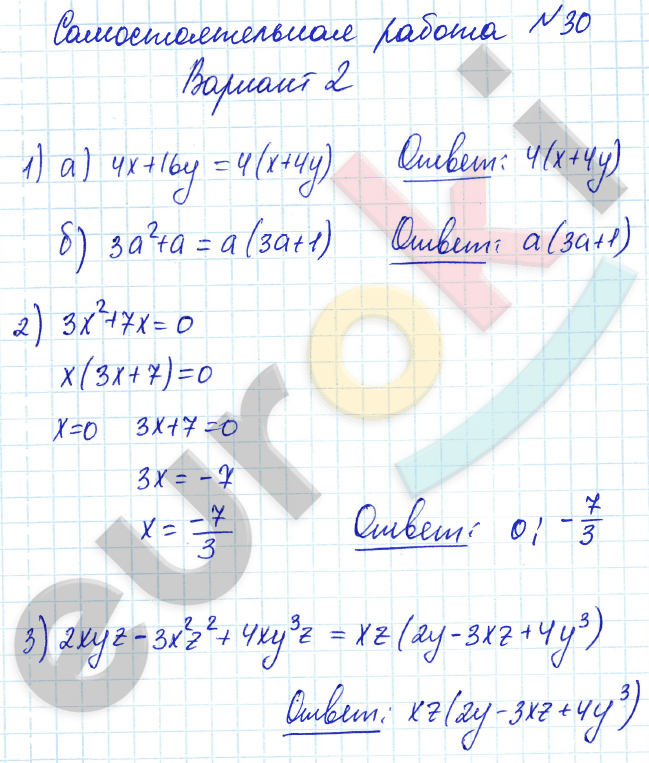 Самостоятельная работа №30
Вариант 2
1) а) 4x+16y = 4(x+4y) Ответ: 4(x+4y)
б) 3a²+a = a(3a+1) Ответ: a(3a+1)
2) 3x²+7x=0
x(3x+7)=0
x=0 3x+7=0
3x = -7
x = -7/3 Ответ: 0; -7/3
3) 2xyz - 3x²z² + 4xy³z = xz(2y-3xz+4y³)
Ответ: xz(2y-3xz+4y³)
euroki